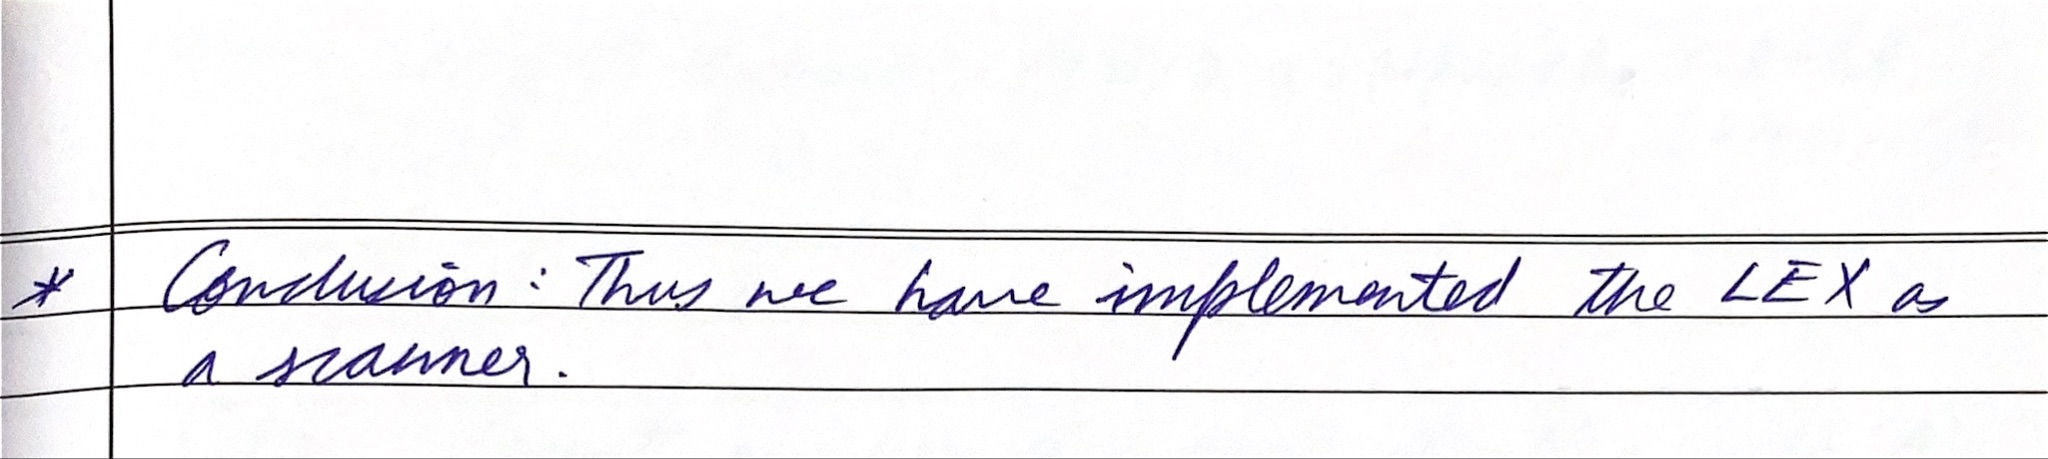 * Conclusion: Thus we have implemented the LEX as
a scanner.